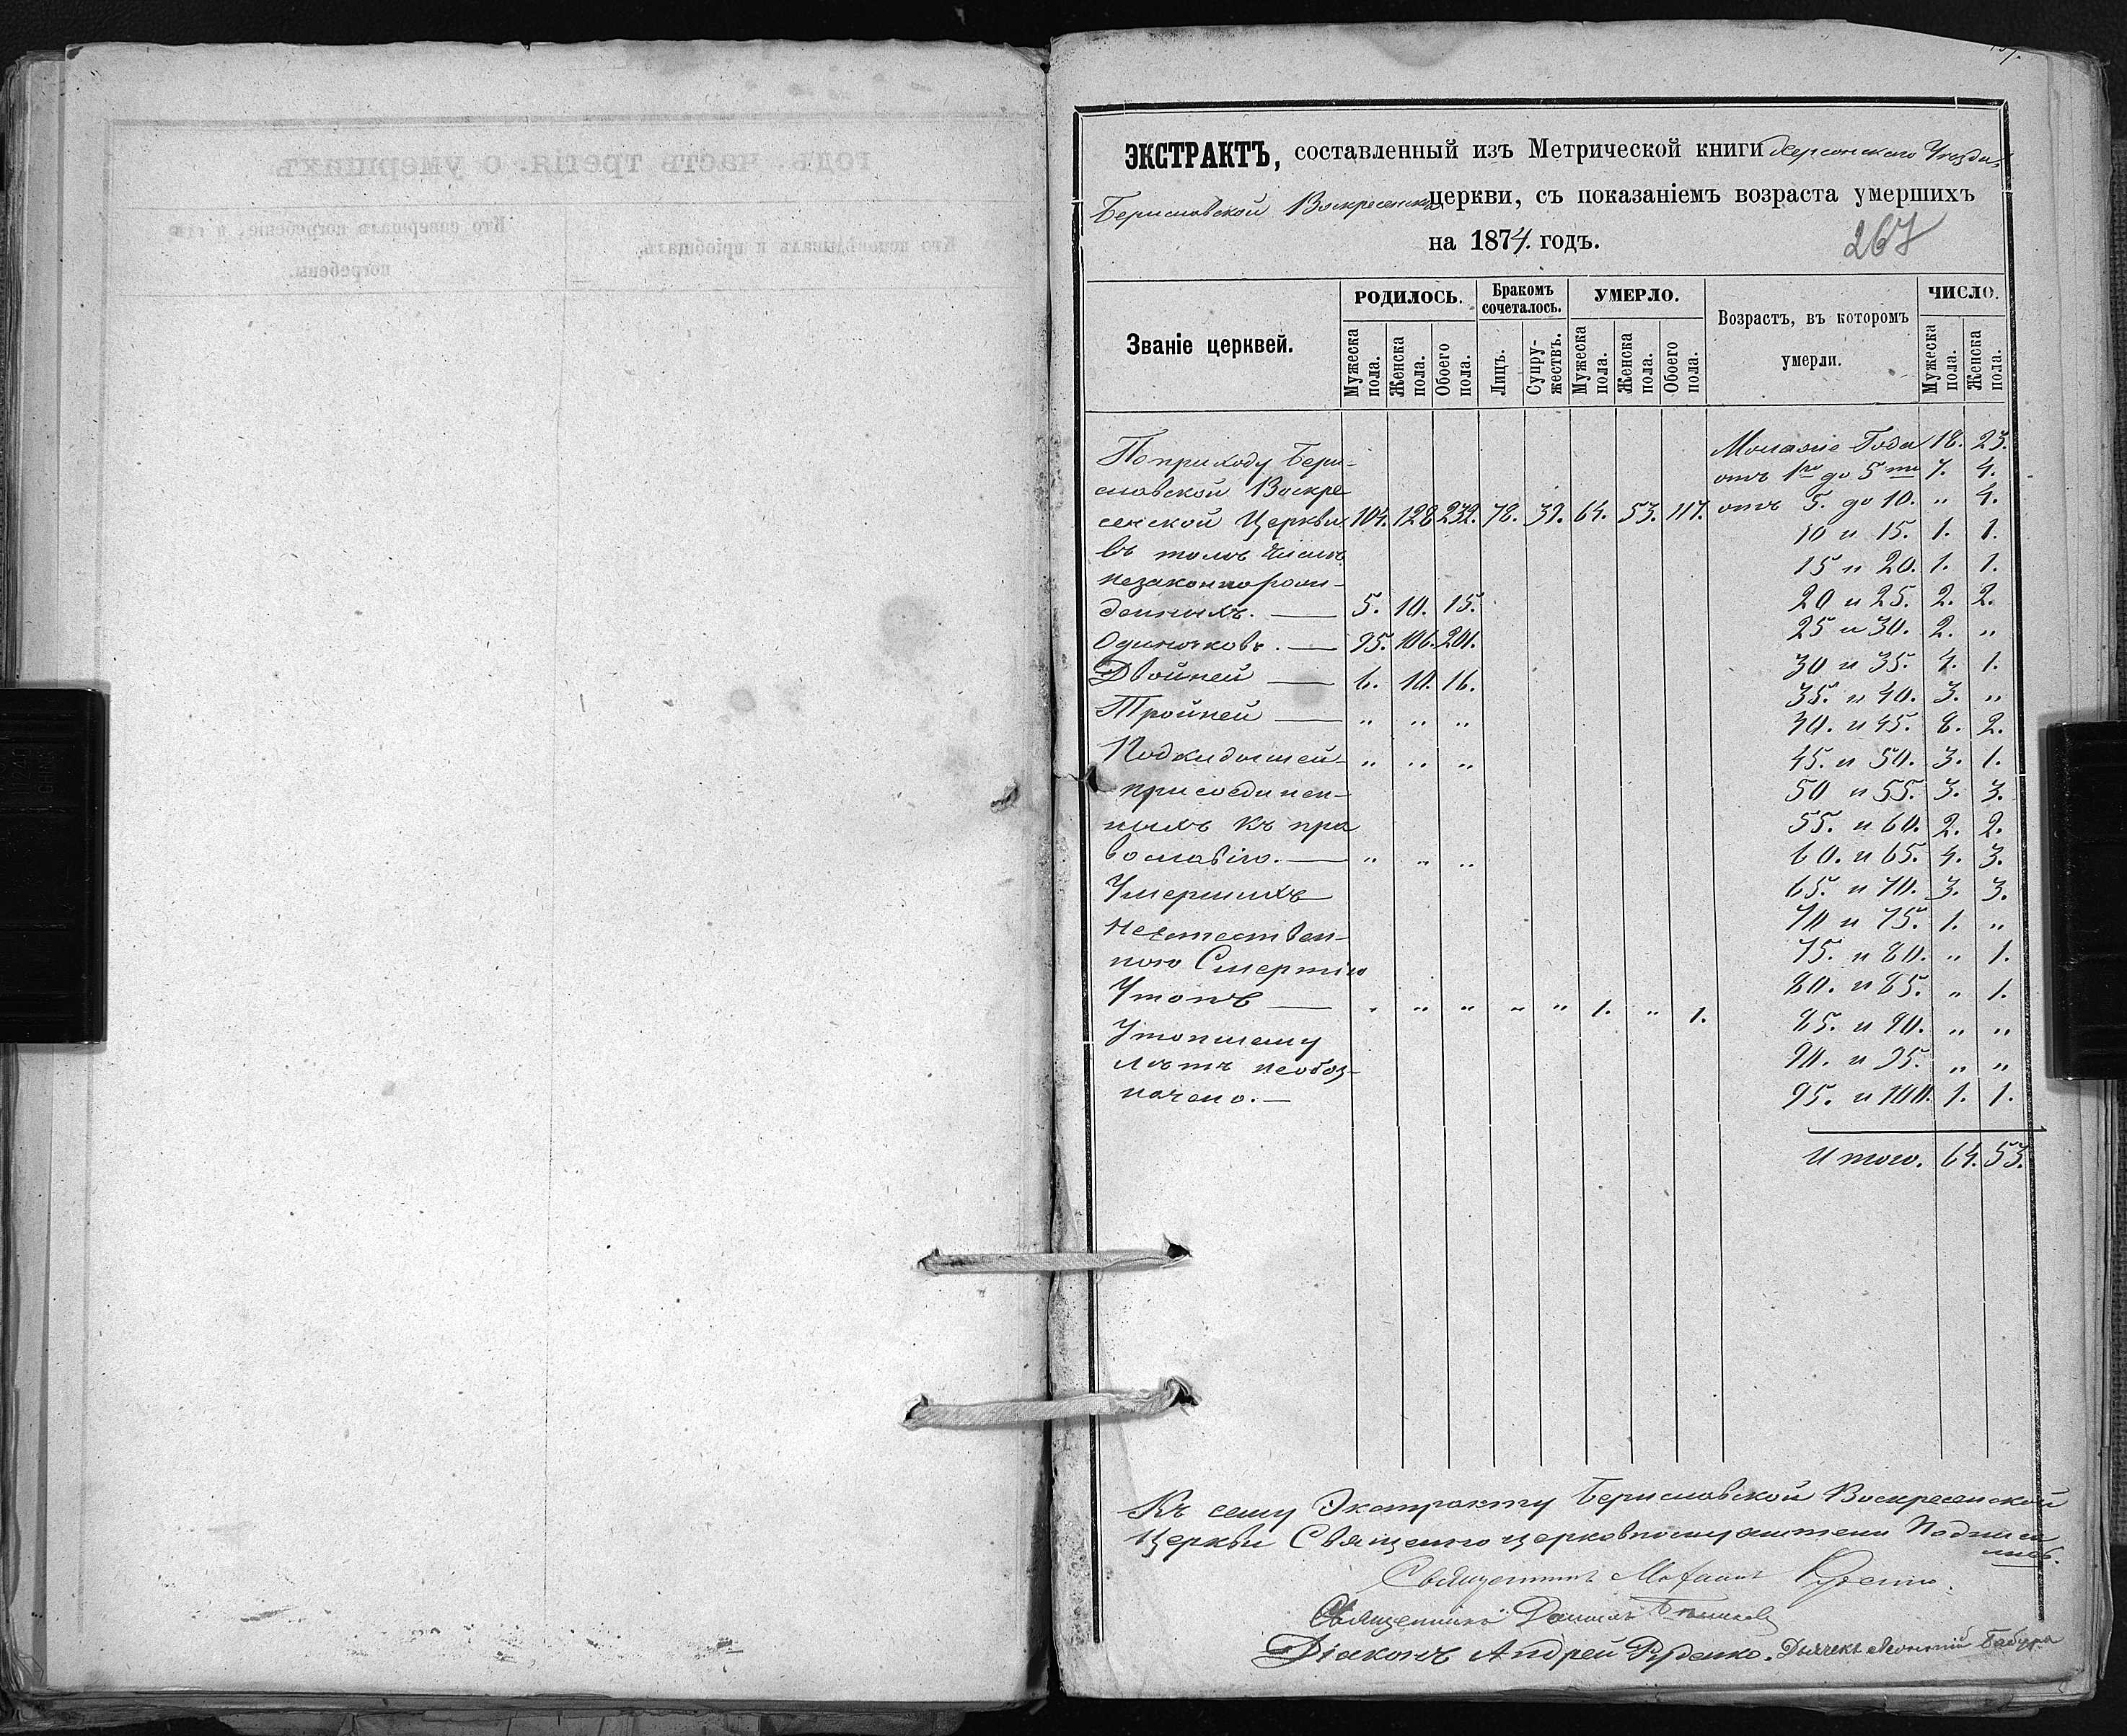 годъ. часть третія. о умершихъ
Кто исповѣдывалъ и пріобщалъ.
Кто совершалъ погребеніе, и гдѣ
погребены.
ЭКСТРАКТЪ, составленный изъ Метрической книги Херсонскаго Уѣзда
Бериславской Воскресенской церкви, съ показаніемъ возраста умершихъ
на 1874. годъ.
267
Званіе церквей.
РОДИЛОСЬ.
Мужеска пола.
Женска пола.
Обоего пола.
Бракомъ сочеталось.
Лицъ.
Супружествъ.
УМЕРЛО.
Мужеска пола.
Женска пола.
Обоего пола.
Возрастъ, въ которомъ
умерли.
ЧИСЛО.
Мужеска пола.
Женска пола.
По приходу Бери-
славской Воскре
сенской Церкви 104. 128 232. 78. 39. 64. 53. 117.
въ томъ числѣ
незаконнорож-
денныхъ. — 5. 10. 15.
Одиночковъ. — 95. 106. 201.
Двойней — 6. 10. 16.
Тройней — " " "
Подкидышей — " " "
присоединен-
ныхъ къ пра
вославію. — " " "
Умершихъ
неестествен-
ною Смертію
Утопъ — " " " " " 1. " 1.
Утопшему
лѣтъ необоз-
начено. —
Молаже Года 18. 23.
отъ 1го до 5ти 7. 4.
отъ 5. до 10. " 4.
10 и 15. 1. 1.
15 и 20. 1. 1.
20 и 25. 2. 2.
25 и 30. 2. "
30 и 35. 4. 1.
35. и 40. 3. "
40. и 45. 8. 2.
45. и 50. 3. 1.
50 и 55. 3. 3.
55. и 60. 2. 2.
60. и 65. 4. 3.
65. и 70. 3. 3.
70 и 75. 1. "
75. и 80. " 1.
80. и 85. " 1.
85. и 90. " "
90. и 95. " "
95. и 100. 1. 1.
Итого. 64. 53.
Къ сему Экстракту Бериславской Воскресенской
Церкви Священно церковнослужители Подписа
лись.
Священникъ
Священникъ Даніилъ
Діаконъ Андрей Руденко. Дьячекъ Бабура